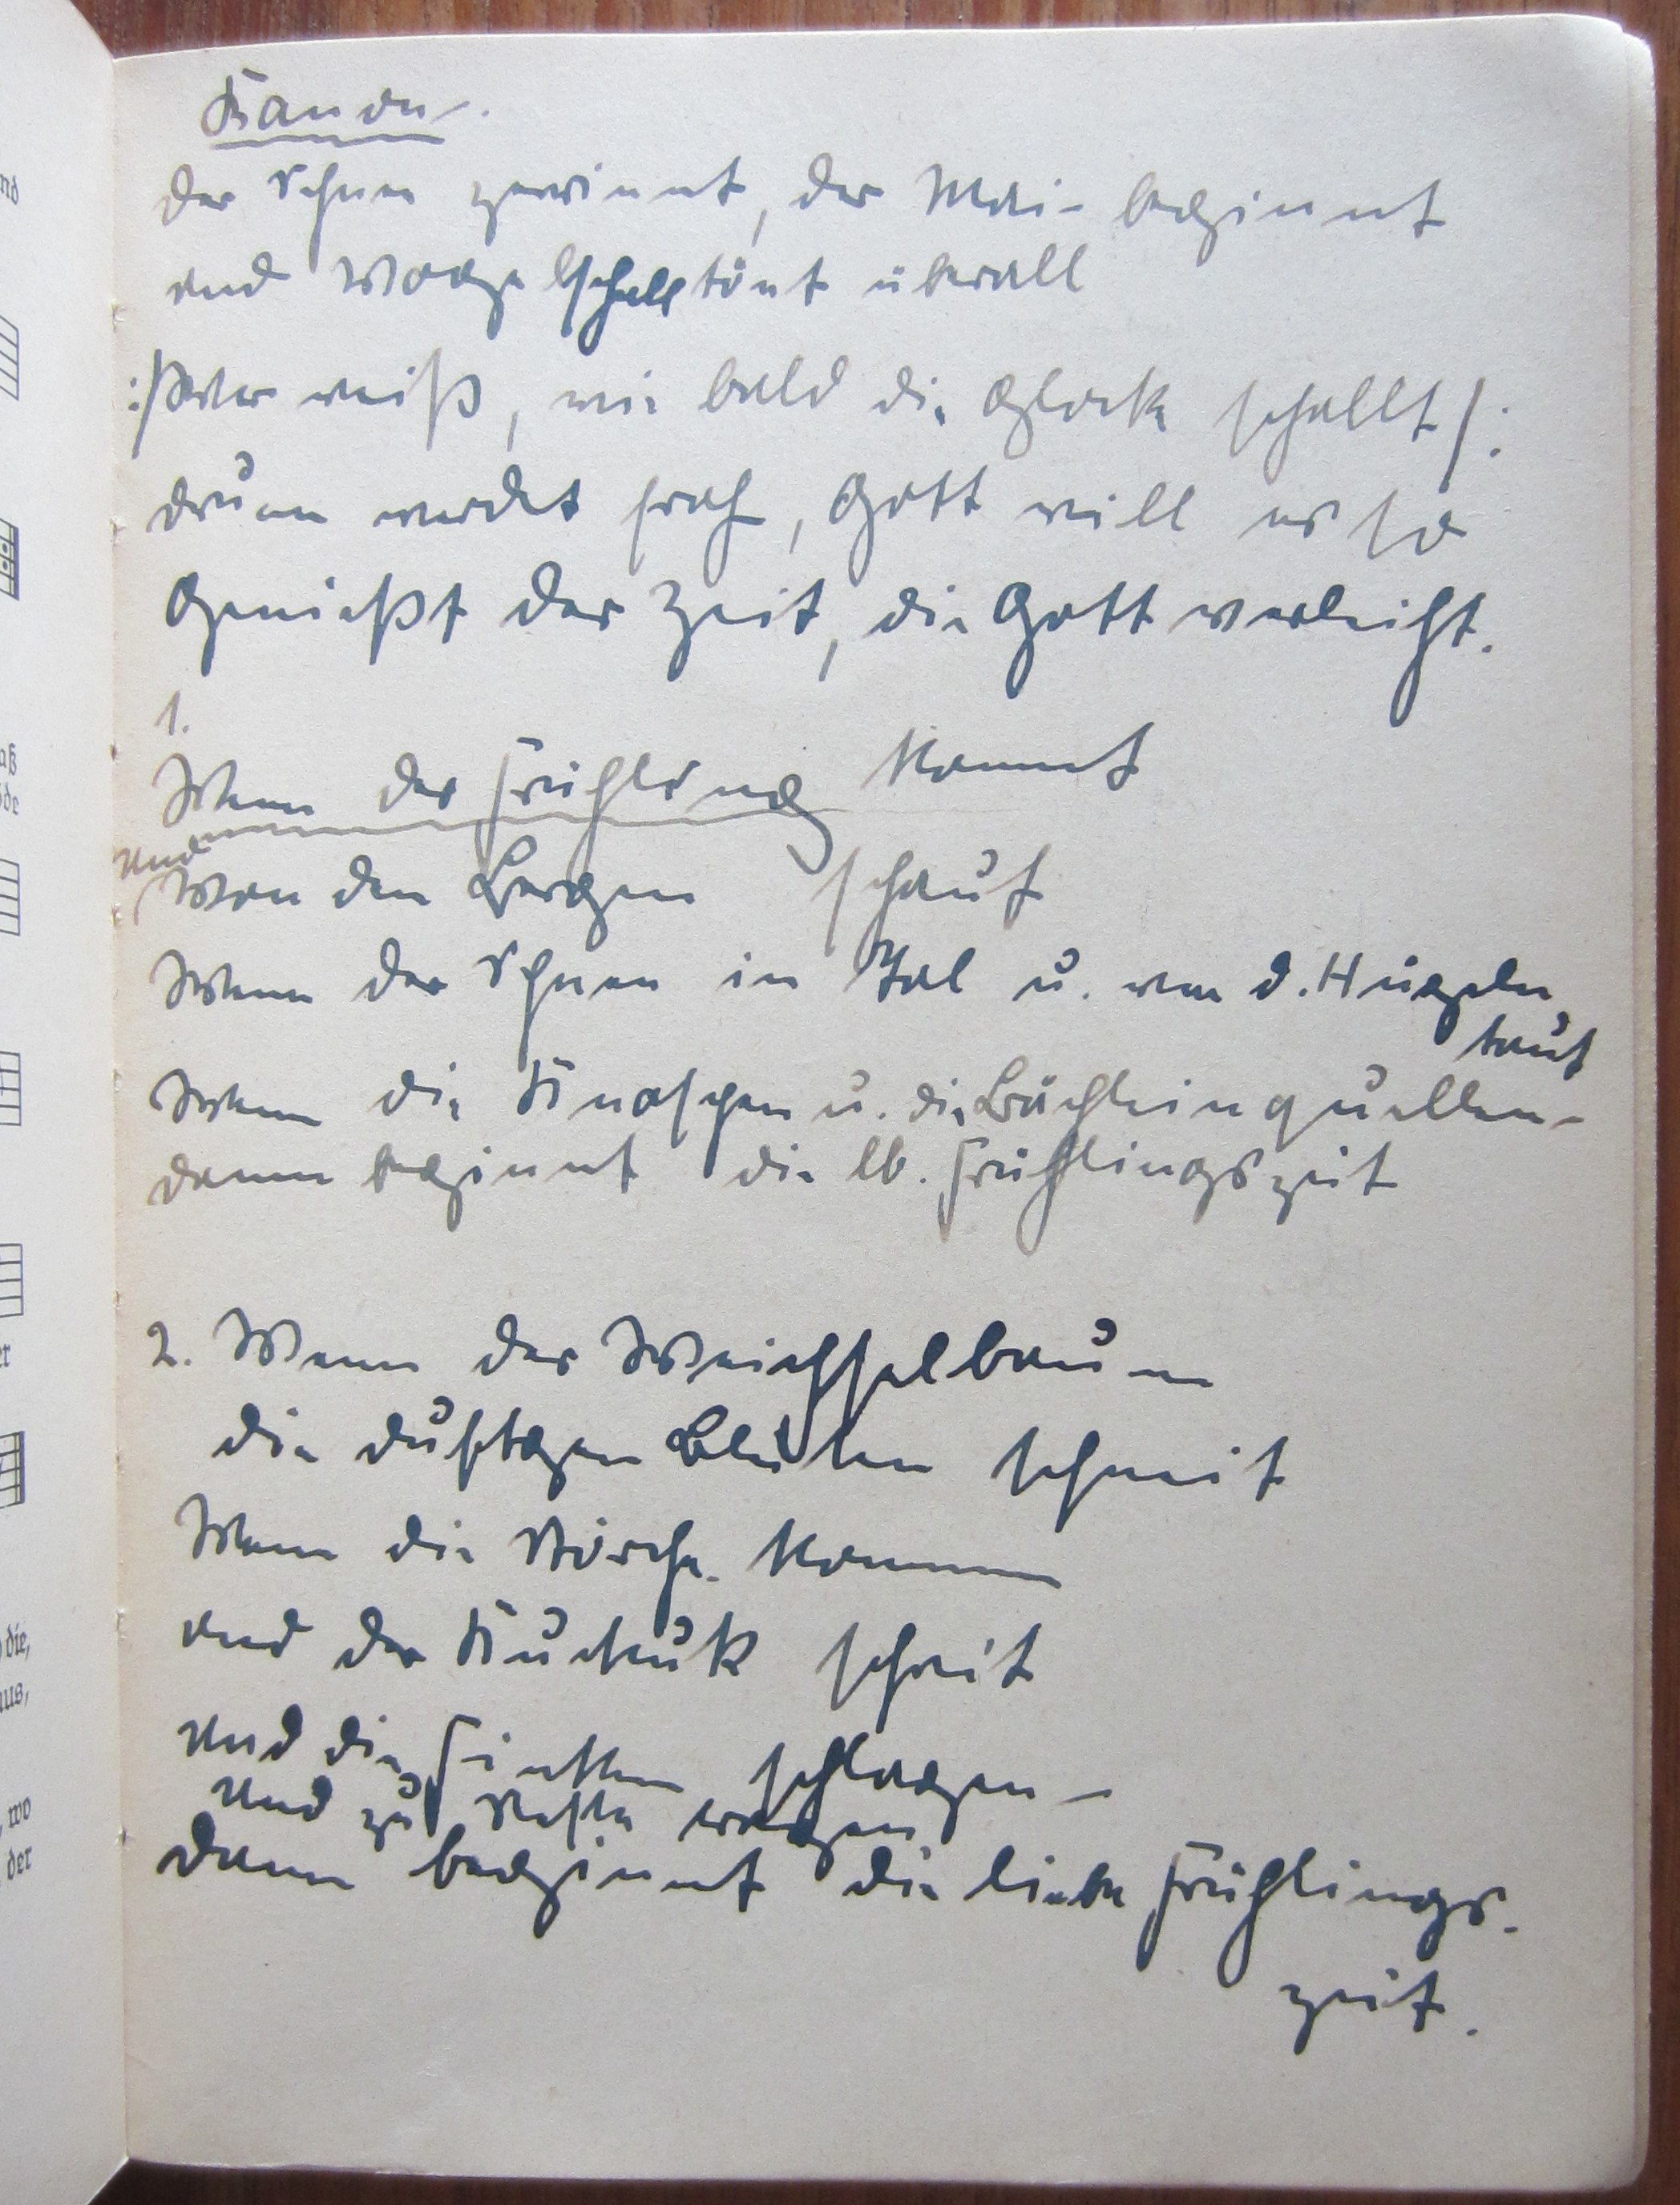 Kanon.
der Schnee zerrinnt, der Mai beginnt
und Vogelschall tönt überall
:/: Wer weiß, wie bald die Glocke schallt /:
drum werdet froh, Gott will es so
Genießt der Zeit, die Gott verleiht.
1.
Wenn der Frühling kommt
und
Von den Bergen schaut
Wenn der Schnee im Tal u. von d. Hügeln
taut
Wenn die Knospen u. die Bächlein quellen -
dann beginnt die lb. Frühlingszeit
2. Wenn der Weichselbaum
die duftgen Blüten schneit
Wenn die Störche kommen
und der Kuckuk schreit
und die Finken schlagen -
und zu Neste tragen
dann beginnt die liebe Frühlings-
zeit.
nd
aß
öde
er
die,
aus,
wo
der